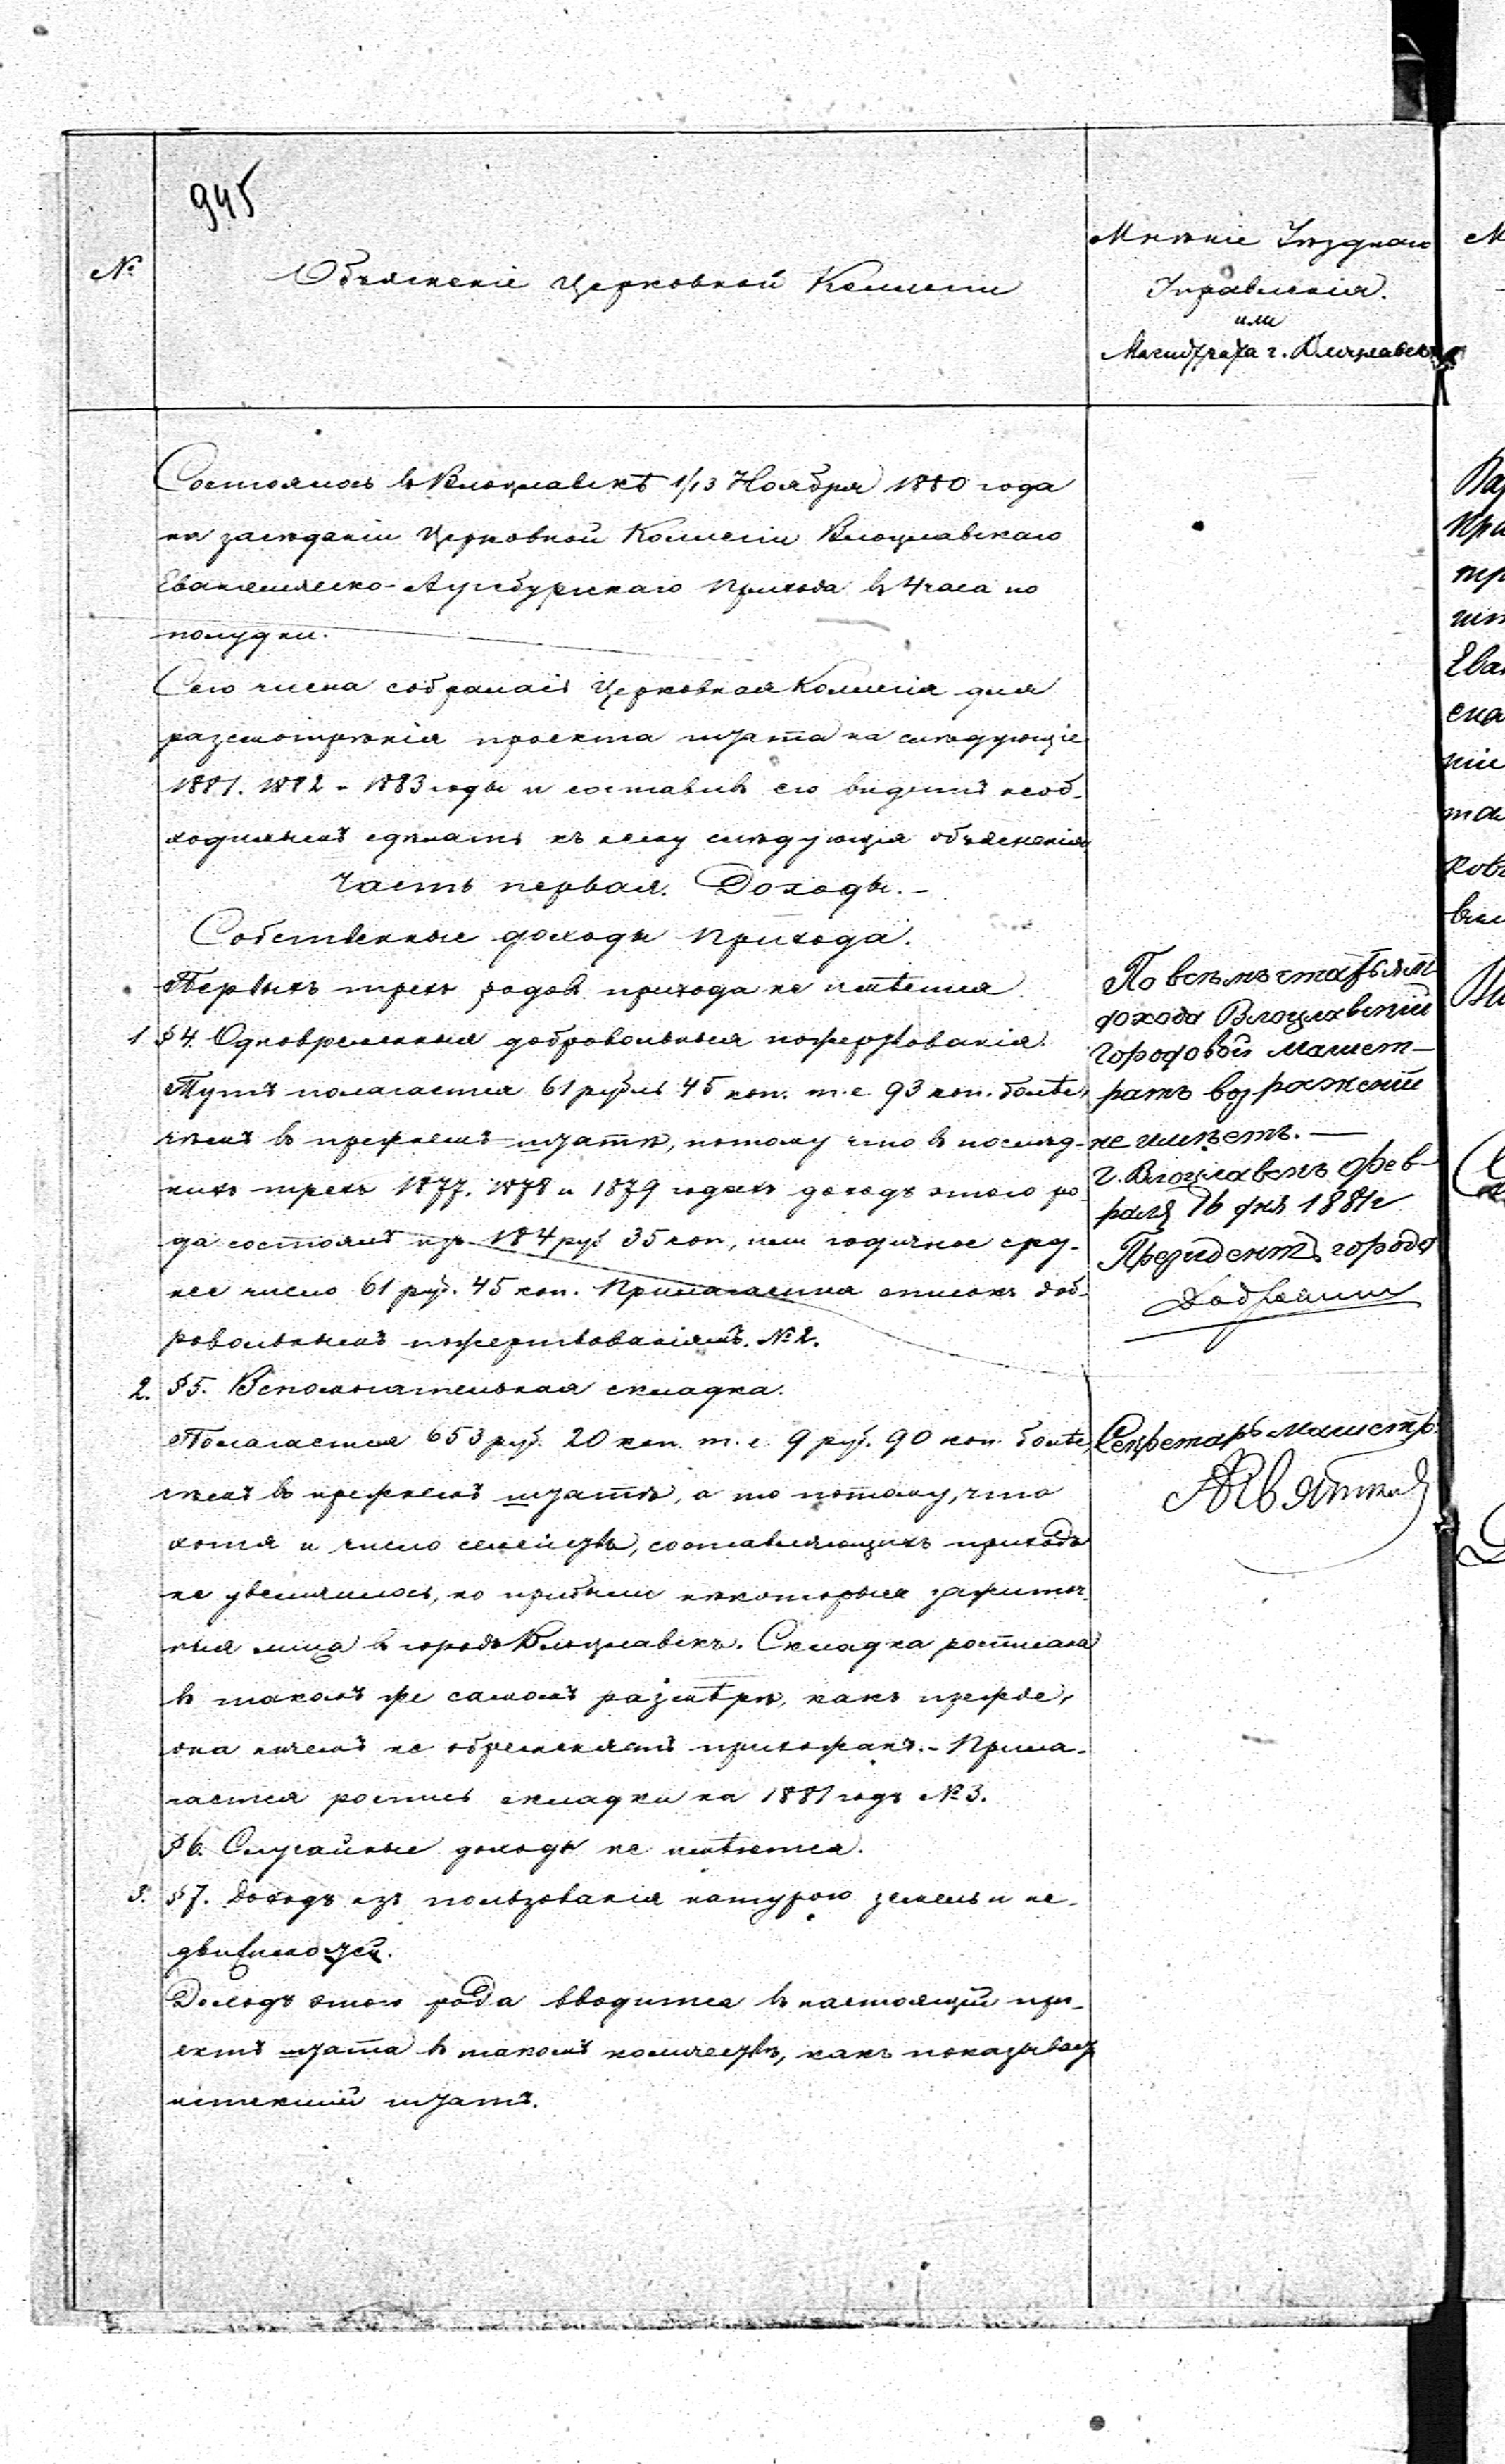 945
№
Объясненіе Церковной Коллегіи
Мнѣніе Уѣзднаго
Управленія.
или
Магистрата г. Влоцлавска
Состоялось въ Влоцлавскѣ 1/13 Ноября 1880 года
на засѣданіи Церковной Коллегіи Влоцлавскаго
Евангелическо-Аугсбургскаго Прихода въ 4 часа по
полудни.
Сего числа собралась Церковная Коллегія для
разсмотрѣнія проекта штата на слѣдующіе
1881. 1882 - 1883 годы и составивъ его видитъ необ-
ходимымъ сдѣлать къ нему слѣдующія объясненія
Часть первая. Доходы. -
Собственные доходы прихода.
Первыхъ трехъ родовъ прихода не имѣется
1 §4. Одновременныя добровольныя пожертвованія.
Тутъ полагается 61 рубль 45 коп. т.е. 93 коп. болѣе,
чѣмъ въ прежнемъ штатѣ, потому что въ послѣд-
нихъ трехъ 1877. 1878 и 1879 годахъ доходъ этого ро-
да состоялъ изъ 184 руб 35 коп, или годичное сред-
нее число 61 руб. 45 коп. Прилагается списокъ доб-
ровольнымъ пожертвованіямъ. №2.
2. §5. Вспомогательная складка.
Полагается 653 руб. 20 коп. т.е. 9 руб. 90 коп. болѣе,
чѣмъ въ прежнемъ штатѣ, а то потому, что
хотя и число семействъ, составляющихъ приходъ
не увеличилось, но прибыли нѣкоторыя зажиточ-
ныя лица въ городъ Влоцлавскъ. Складка росписана
въ такомъ же самомъ размѣрѣ, какъ прежде,
она ничемъ не обременяетъ прихожанъ. - Прила-
гается роспись складки на 1881 годъ №3.
§6. Случайные доходы не имѣются.
3. §7. Доходъ изъ пользованія натурою земель и не-
движимостей.
Доходъ этого рода вводится въ настоящій про-
ектъ штата въ такомъ количествѣ, какъ показывалъ
истекшій штатъ.
По всѣмъ статьямъ
дохода Влоцлавскій
Городовой Магист-
ратъ возраженій
не имѣетъ. —
г. Влоцлавскъ Фев-
раля 16 дня 1881 г
Президентъ города
Секретарь Магистр.